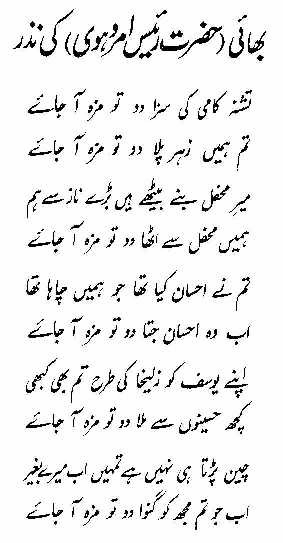 بھائی (حضرت رئیس امروہوی) کی نذر
تشنہ کامی کی سزا دو تو مزہ آ جائے
تم ہمیں زہر پلا دو تو مزہ آ جائے
میر محفل بنے بیٹھے ہیں بڑے ناز سے ہم
ہمیں محفل سے اٹھا دو تو مزہ آ جائے
تم نے احسان کیا تھا جو ہمیں چاہا تھا
اب وہ احسان جتا دو تو مزہ آ جائے
اپنے یوسف کو زلیخا کی طرح تم بھی کبھی
کچھ حسینوں سے ملا دو تو مزہ آ جائے
چین پڑتا ہی نہیں ہے تمہیں اب میرے بغیر
اب جو تم مجھ کو گنوا دو تو مزہ آ جائے